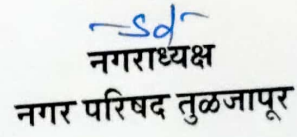 -sd-
नगराध्यक्ष
नगर परिषद तुळजापूर